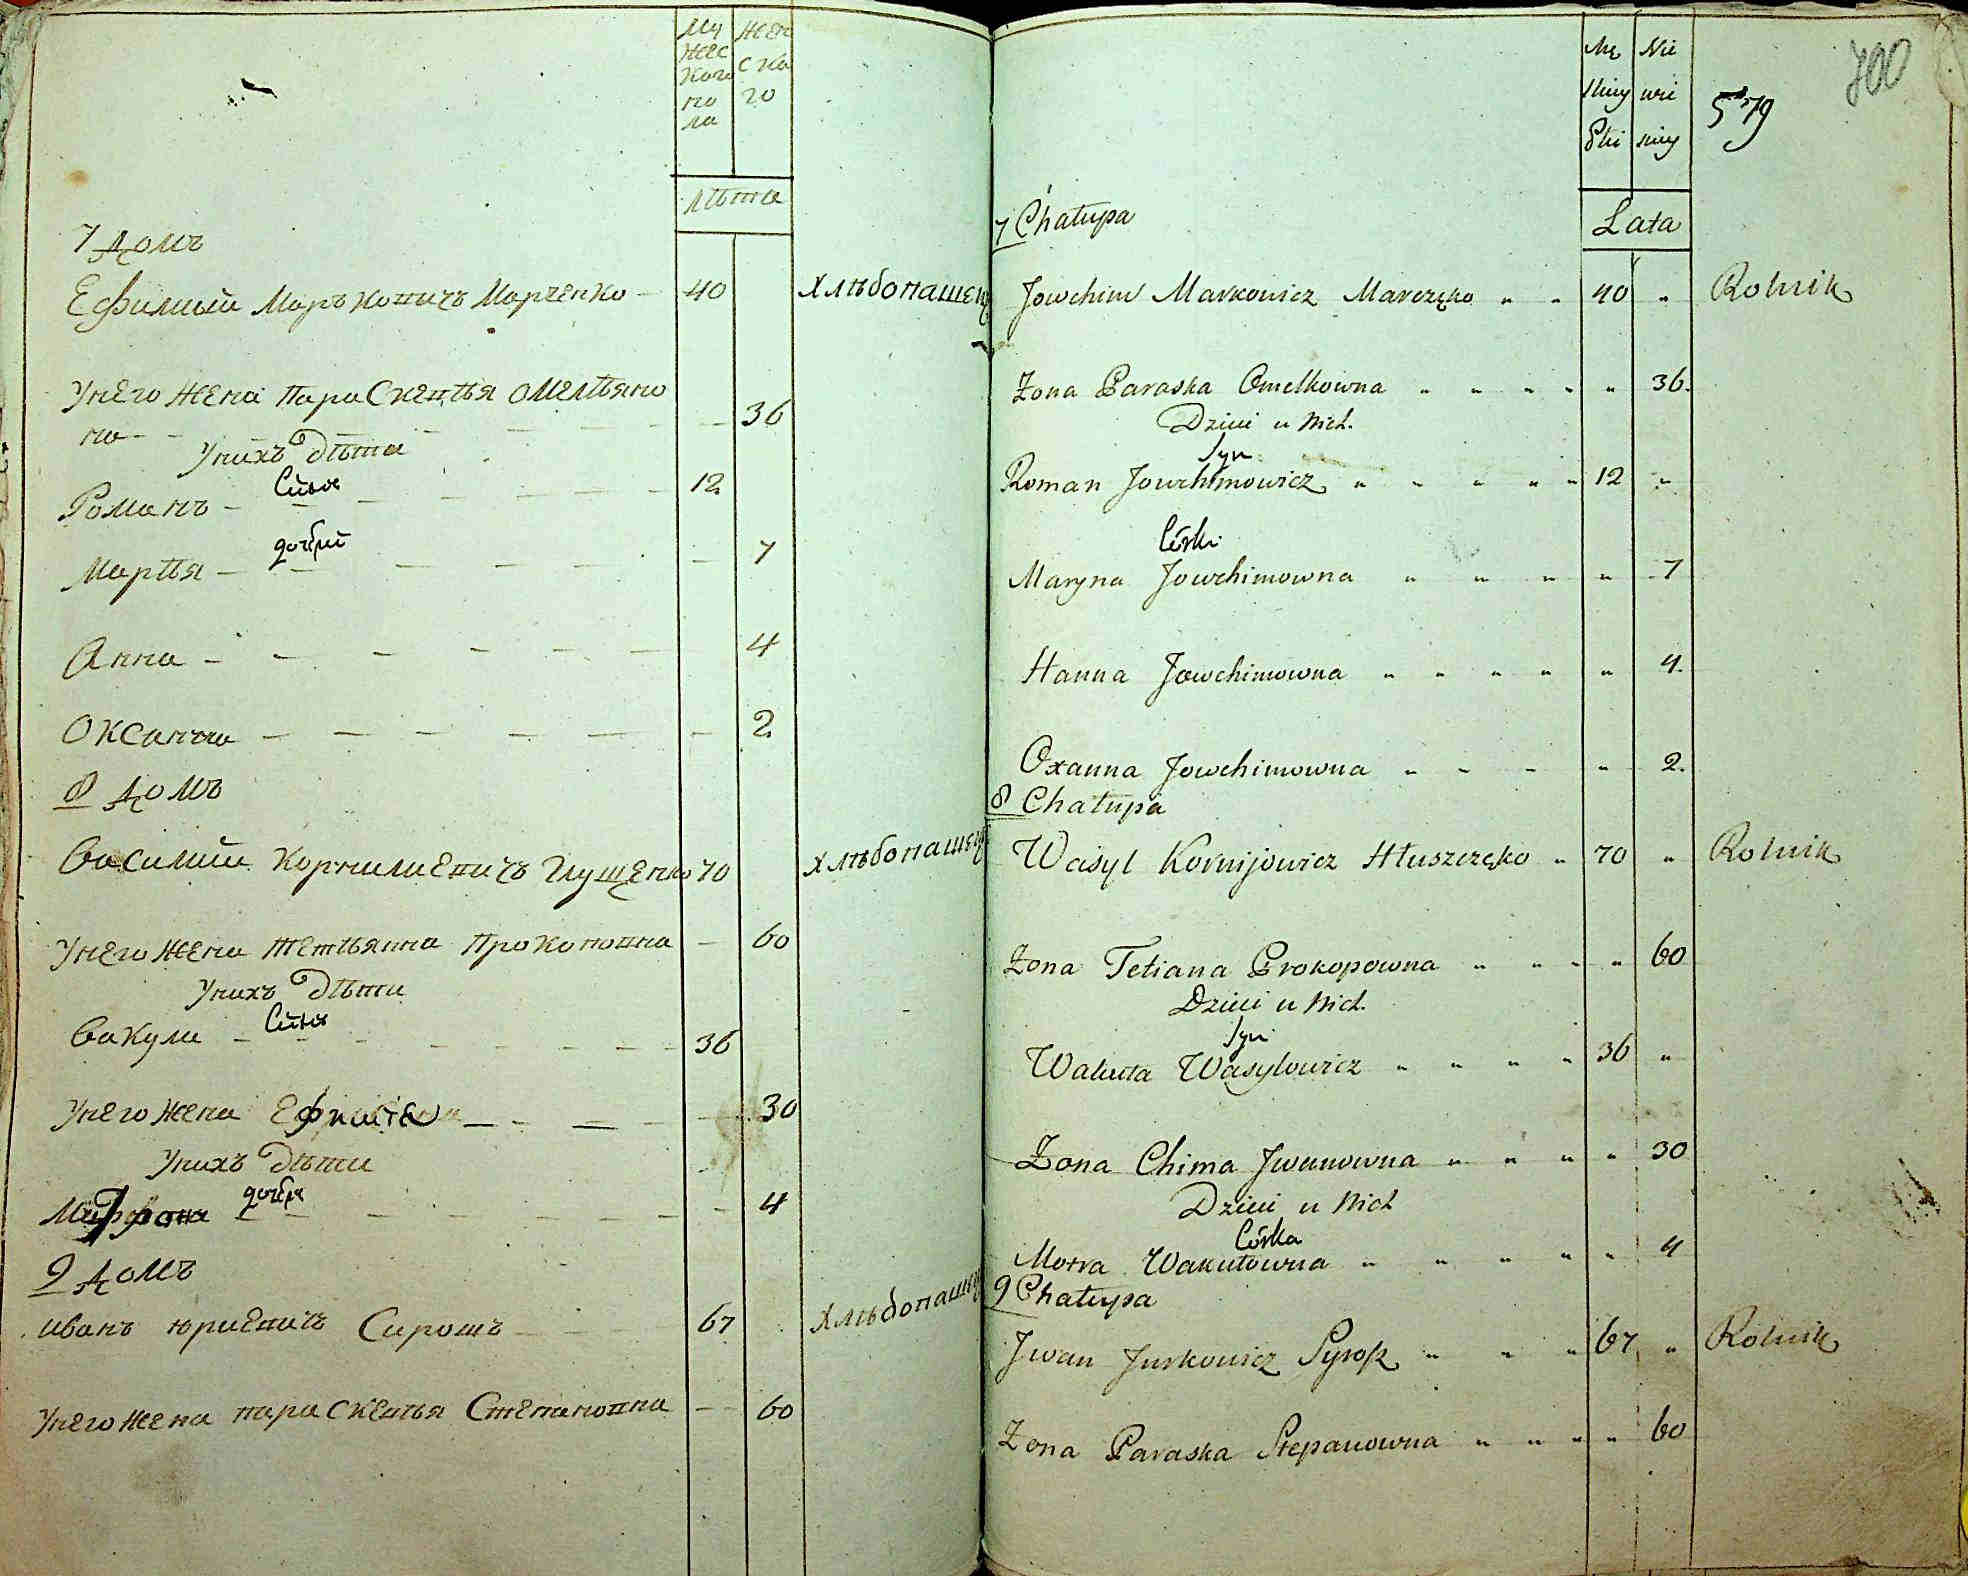 Му
жес
кого
по
ла
Жен
ска
го
лѣта
7 домъ
Ефимий Марковичъ Марченко - 40 Хлѣбопашец
Унего жена Параскевѣя Омелѣяно
вна - - - 36
Унихъ дѣти
Сынъ
Романъ - - - 12
дочери
Марѣя - - - 7
Анна - - - 4
Оксанна - - - 2
8 домъ
Василий Корнилиевичъ Глущенко 70 Хлѣбопашец
Унего жена Тетѣянна Прокоповна - 60
Унихъ дѣти
Сынъ
Вакула - - - 36
Унего жена - - - 30
Унихъ дѣти
дочь
- - - 4
9 домъ
Иванъ Юриевичъ Сирошъ - 67 Хлѣбопашец
Унего жена Параскевѣя Степановна - - 60
700
579
Mę
skiey
Płci
Nie
wie
sciey
Lata
7 Chałupa
Jowchim Markowicz Marczęko " " 40 " Rolnik
Żona Paraska Omelkowna " " " " " 36.
Dzieci u Nich.
Syn
Roman Jowchimowicz " " " " " 12 "
Córki
Maryna Jowchimowna " " " " 7
Hanna Jowchimowna " " " " " 4.
Oxanna Jowchimowna " " " " 2.
8 Chałupa
Wasyl Kornijowicz Hłuszczęko " 70 " Rolnik
Żona Tetiana Prokopowna " " " " 60
Dzieci u Nich.
Syn
Wakuła Wasylowicz " " " " 36 "
Żona Chima Jwanowna " " " " 30
Dzieci u Nich
Córka
Motra Wakułowna " " " " " 4
9 Chałupa
Jwan Jurkowicz Syrosz " " " 67 " Rolnik
Żona Paraska Stepanowna " " " " 60